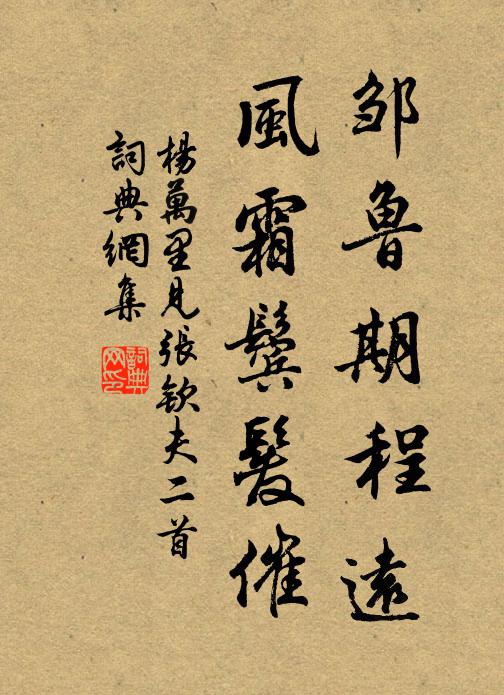 邹魯期程遠
風霜鬓髮催
楊萬里見張欽夫二首
詞典網集
詞典网印